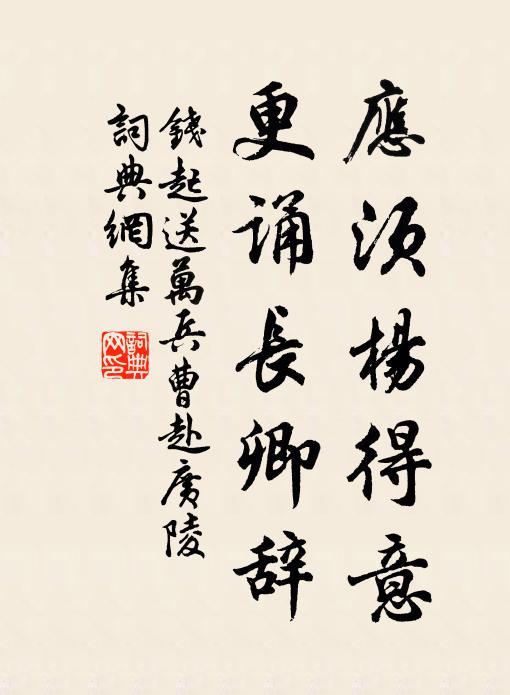 應須楊得意
更誦長卿辞
錢起送萬兵曹赴廣陵
詞典網集
詞典网印